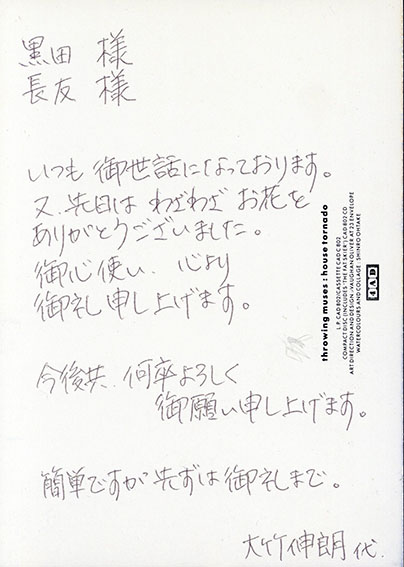 黒田 様
長友 様
いつも 御世話になっております。
又、先日は わざわざ お花を
ありがとうございました。
御心使い、心より
御礼申し上げます。
今後共、何卒よろしく
御願い申し上げます。
簡単ですが 先ずは 御礼まで。
大竹伸朗 代.
throwing muses : house tornado
L.P. CAD 802/CASSETTE CAD C 802
COMPACT DISC (INCLUDES 'THE FAT SKIER') CAD 802 CD
ART DIRECTION AND DESIGN : VAUGHAN OLIVER AT 23 ENVELOPE
WATERCOLOURS AND COLLAGE : SHINRO OHTAKE
4AD